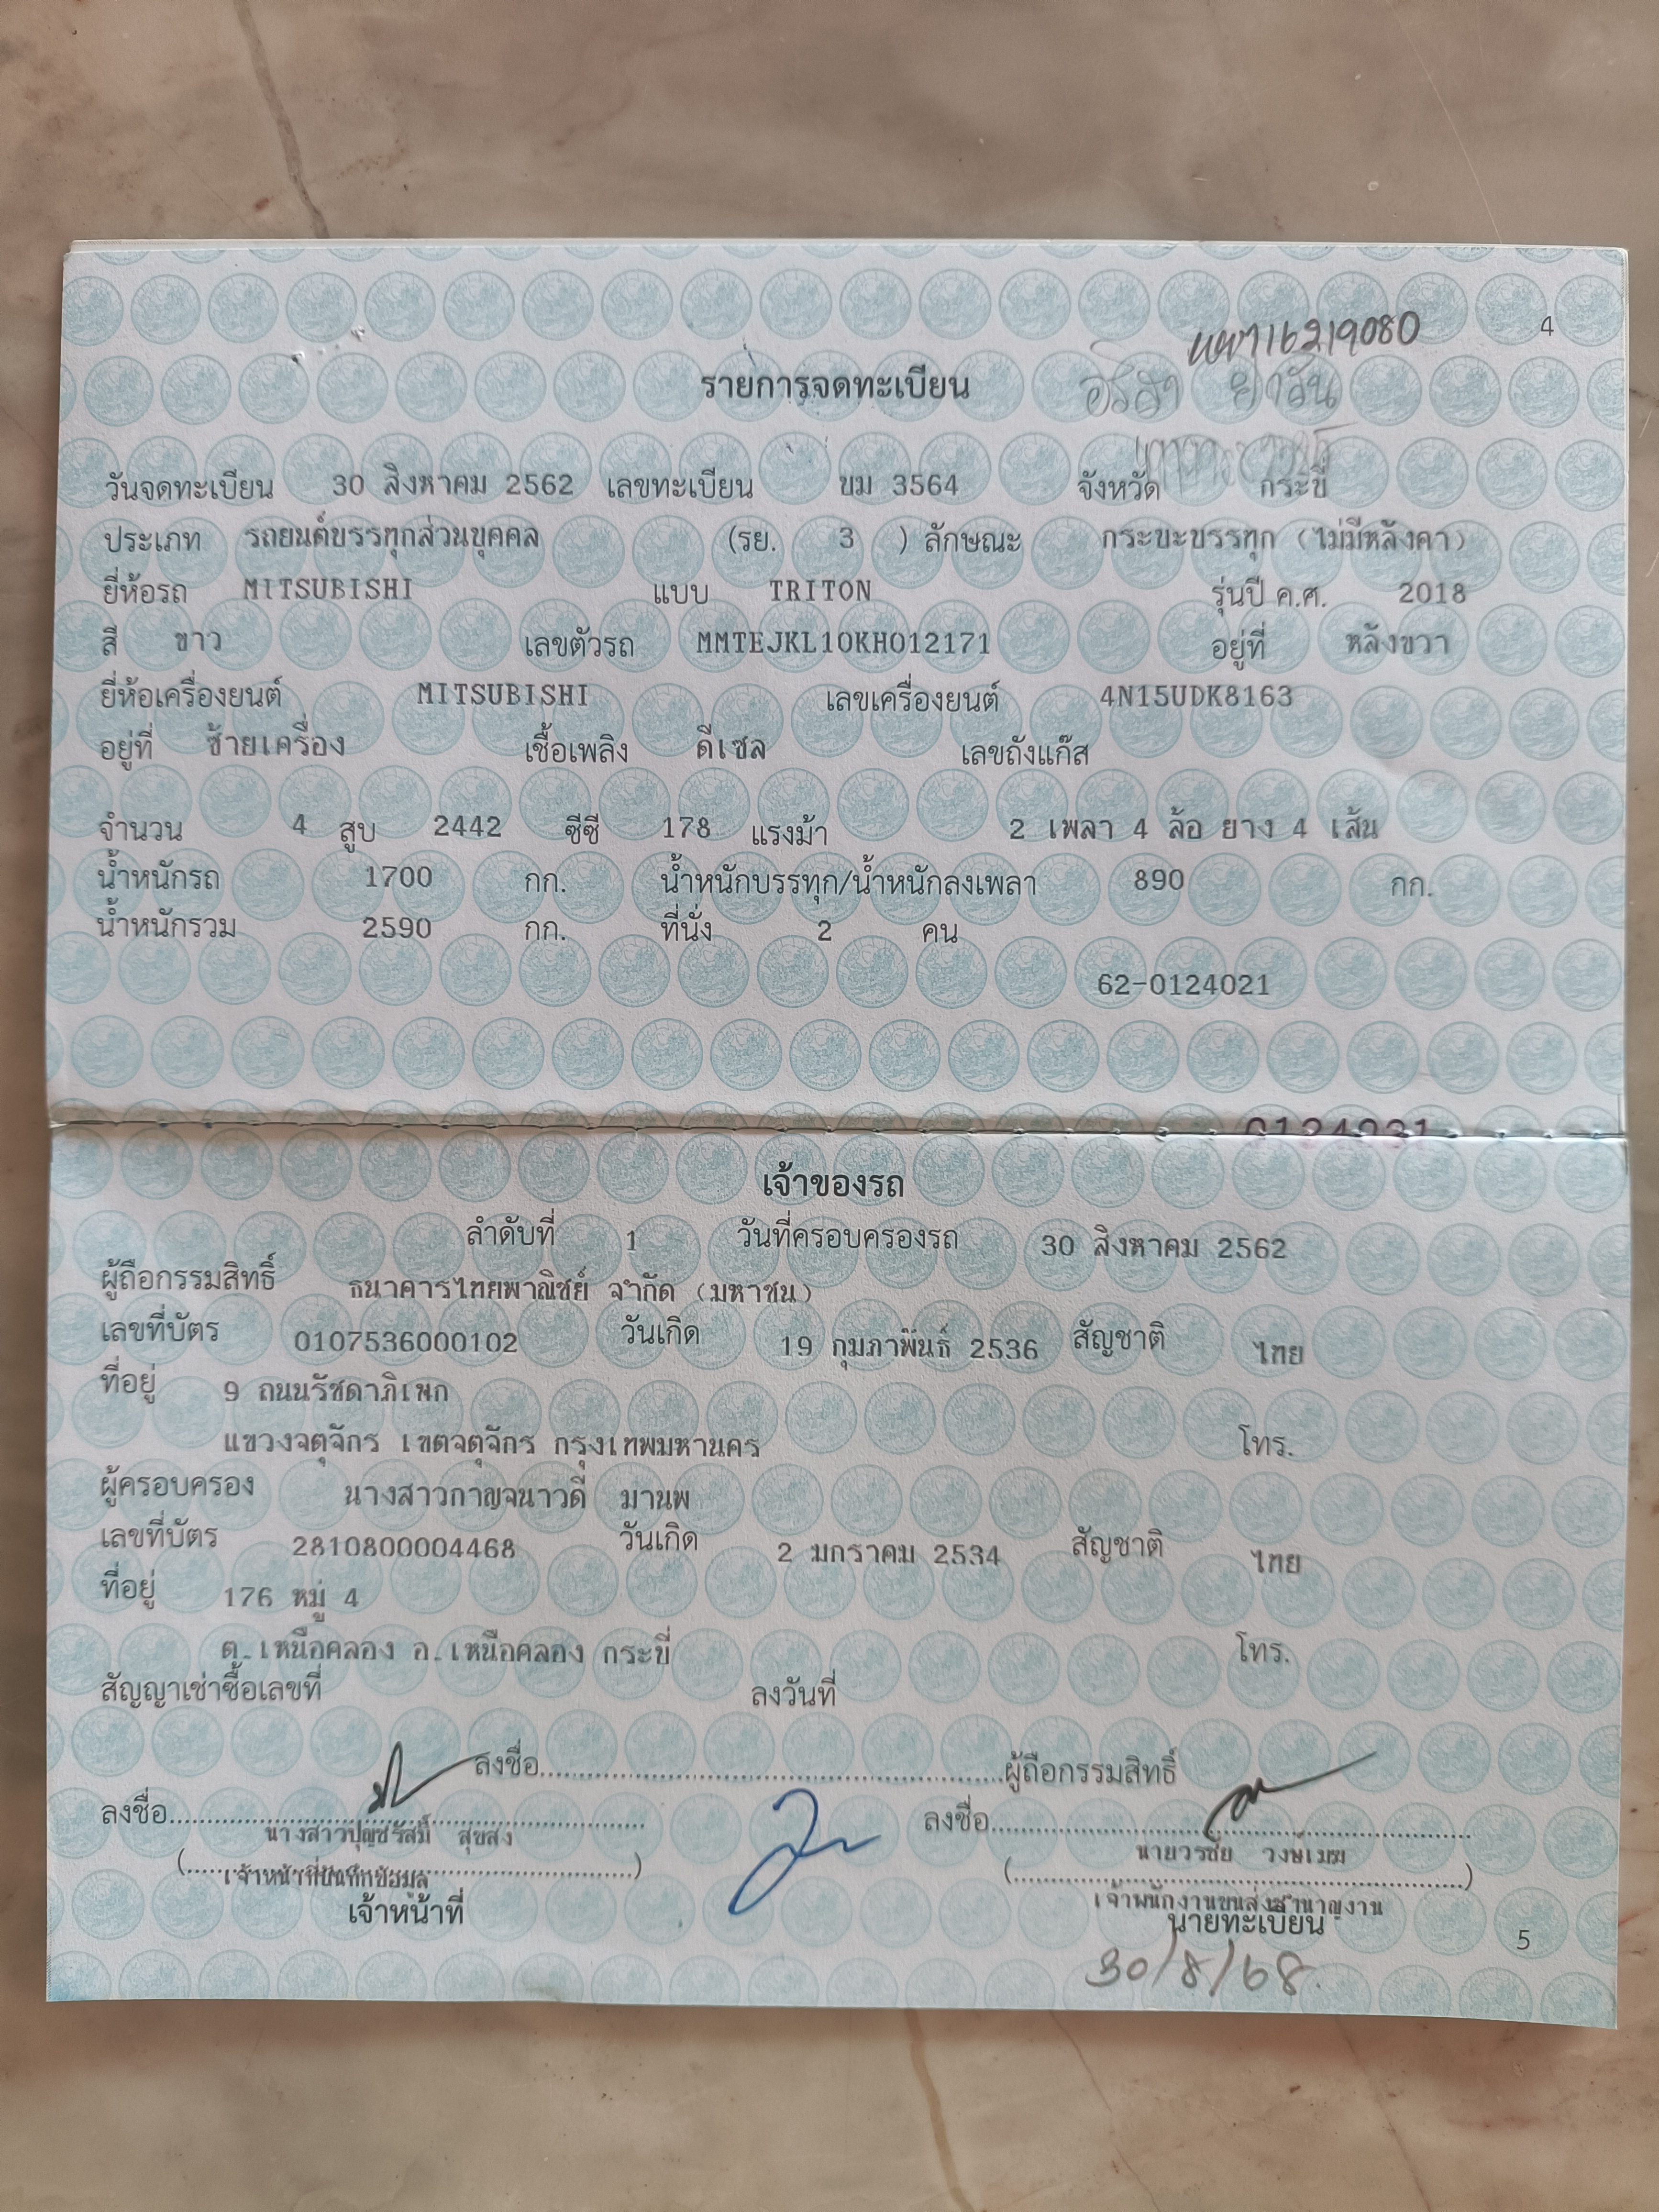 4
รายการจดทะเบียน
วันจดทะเบียน 30 สิงหาคม 2562 เลขทะเบียน ขม 3564 จังหวัด กระบี่
ประเภท รถยนต์บรรทุกส่วนบุคคล (รย. 3 ) ลักษณะ กระบะบรรทุก (ไม่มีหลังคา)
ยี่ห้อรถ MITSUBISHI แบบ TRITON รุ่นปี ค.ศ. 2018
สี ขาว เลขตัวรถ MMTEJKL10KH012171 อยู่ที่ หลังขวา
ยี่ห้อเครื่องยนต์ MITSUBISHI เลขเครื่องยนต์ 4N15UDK8163
อยู่ที่ ซ้ายเครื่อง เชื้อเพลิง ดีเซล เลขถังแก๊ส
จำนวน 4 สูบ 2442 ซีซี 178 แรงม้า 2 เพลา 4 ล้อ ยาง 4 เส้น
น้ำหนักรถ 1700 กก. น้ำหนักบรรทุก/น้ำหนักลงเพลา 890 กก.
น้ำหนักรวม 2590 กก. ที่นั่ง 2 คน
62-0124021
เจ้าของรถ
ลำดับที่ 1 วันที่ครอบครองรถ 30 สิงหาคม 2562
ผู้ถือกรรมสิทธิ์ ธนาคารไทยพาณิชย์ จำกัด (มหาชน)
เลขที่บัตร 0107536000102 วันเกิด 19 กุมภาพันธ์ 2536 สัญชาติ ไทย
ที่อยู่ 9 ถนนรัชดาภิเษก
แขวงจตุจักร เขตจตุจักร กรุงเทพมหานคร โทร.
ผู้ครอบครอง นางสาวกาญจนาวดี มานพ
เลขที่บัตร 2810800004468 วันเกิด 2 มกราคม 2534 สัญชาติ ไทย
ที่อยู่ 176 หมู่ 4
ต.เหนือคลอง อ.เหนือคลอง กระบี่ โทร.
สัญญาเช่าซื้อเลขที่ ลงวันที่
ลงชื่อ............................................................ผู้ถือกรรมสิทธิ์
ลงชื่อ............................................................ ลงชื่อ............................................................
นางสาวปุญชรัสมิ์ สุขสง นายวรชัย วงษ์เมฆ
(............................................................) (............................................................)
เจ้าหน้าที่บันทึกข้อมูล เจ้าพนักงานขนส่งชำนาญงาน
เจ้าหน้าที่ นายทะเบียน
5
30/8/68.